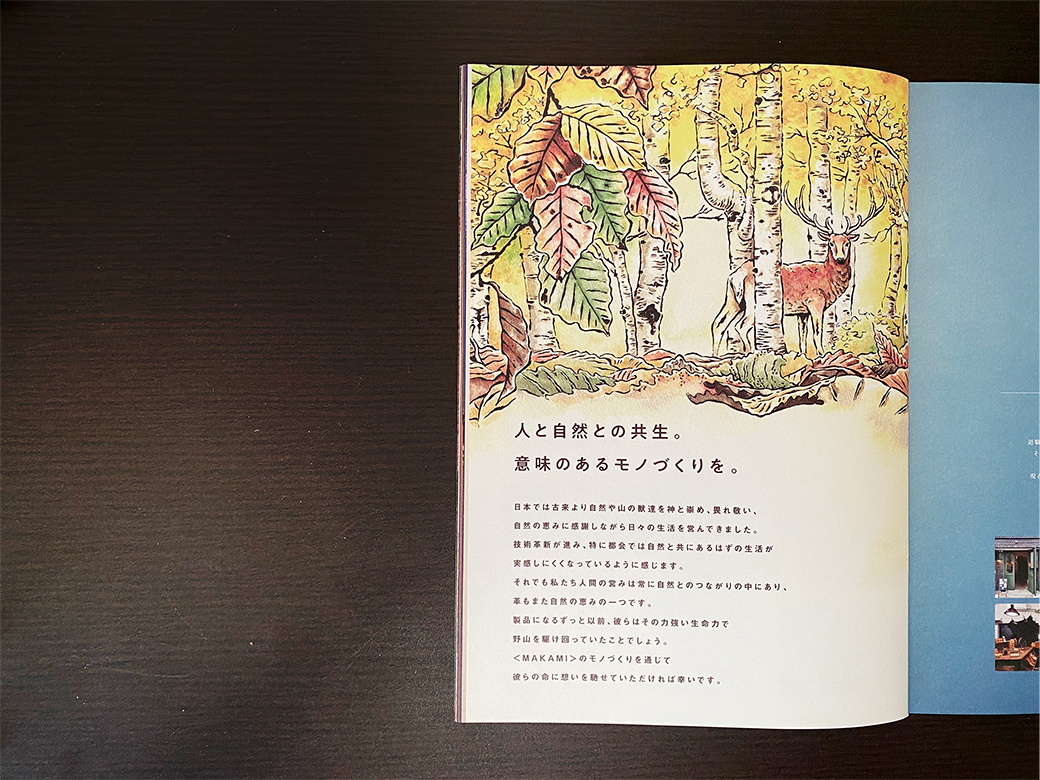 人と自然との共生。
意味のあるモノづくりを。
日本では古来より自然や山の獣達を神と崇め、畏れ敬い、
自然の恵みに感謝しながら日々の生活を営んできました。
技術革新が進み、特に都会では自然と共にあるはずの生活が
実感しにくくなっているように感じます。
それでも私たち人間の営みは常に自然とのつながりの中にあり、
革もまた自然の恵みの一つです。
製品になるずっと以前、彼らはその力強い生命力で
野山を駆け回っていたことでしょう。
<MAKAMI>のモノづくりを通じて
彼らの命に想いを馳せていただければ幸いです。